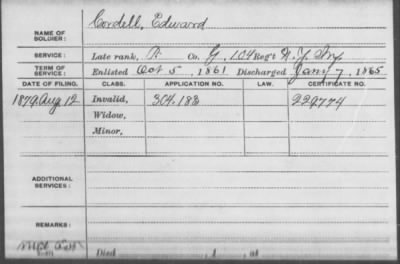 NAME OF SOLDIER: Cordell, Edward
SERVICE: Late rank, P Co. G, 104 Reg't N. Y. Inf.
TERM OF SERVICE: Enlisted Oct 5, 1861 Discharged Jany 7, 1865
DATE OF FILING. CLASS. APPLICATION NO. LAW. CERTIFICATE NO.
1879 Aug 12 Invalid, 304.188 229774
Widow,
Minor,
ADDITIONAL SERVICES:
REMARKS:
Died , 1 , at